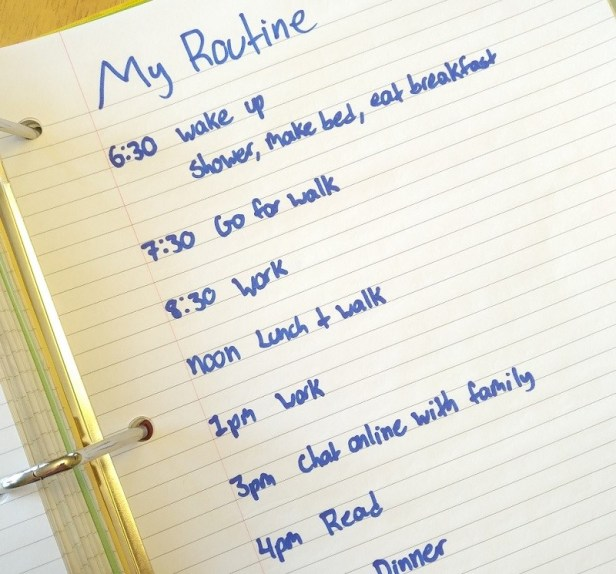 My Routine
6:30 wake up
Shower, make bed, eat breakfast
7:30 Go for walk
8:30 Work
noon Lunch + walk
1pm Work
3pm Chat online with family
4pm Read
Dinner